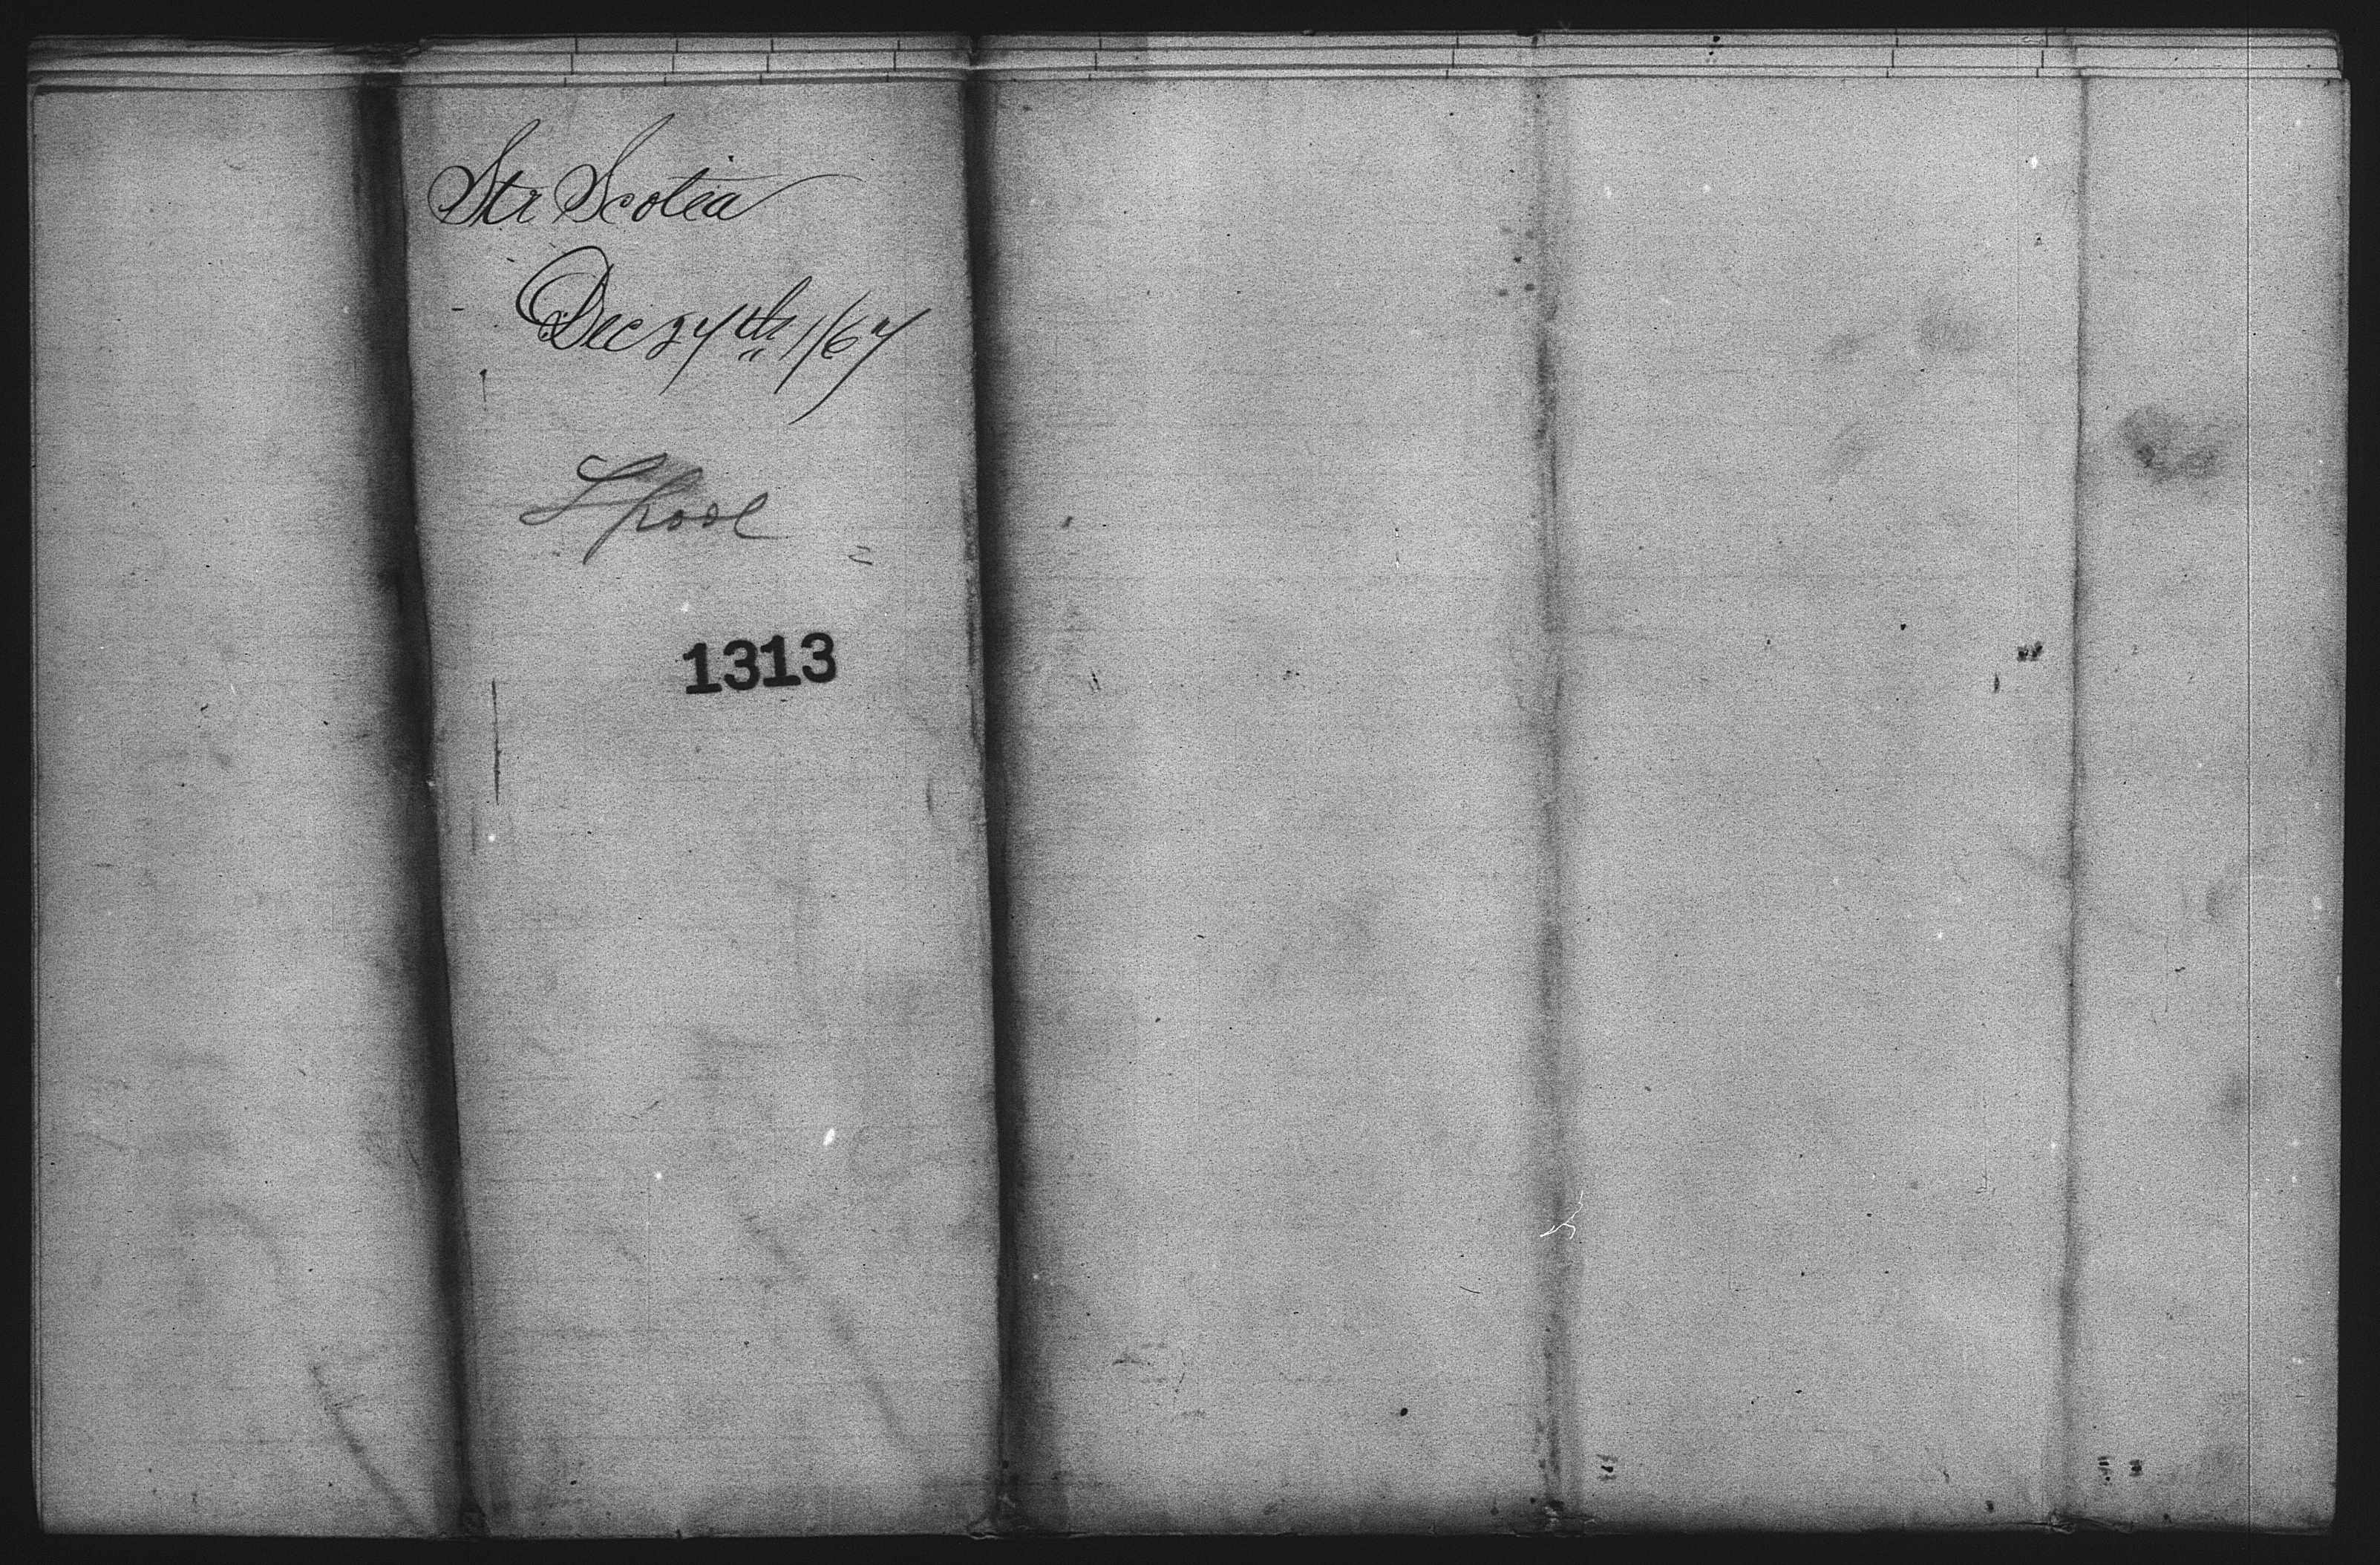 Str Scotia
Dec 27th 1867
Lpool
1313